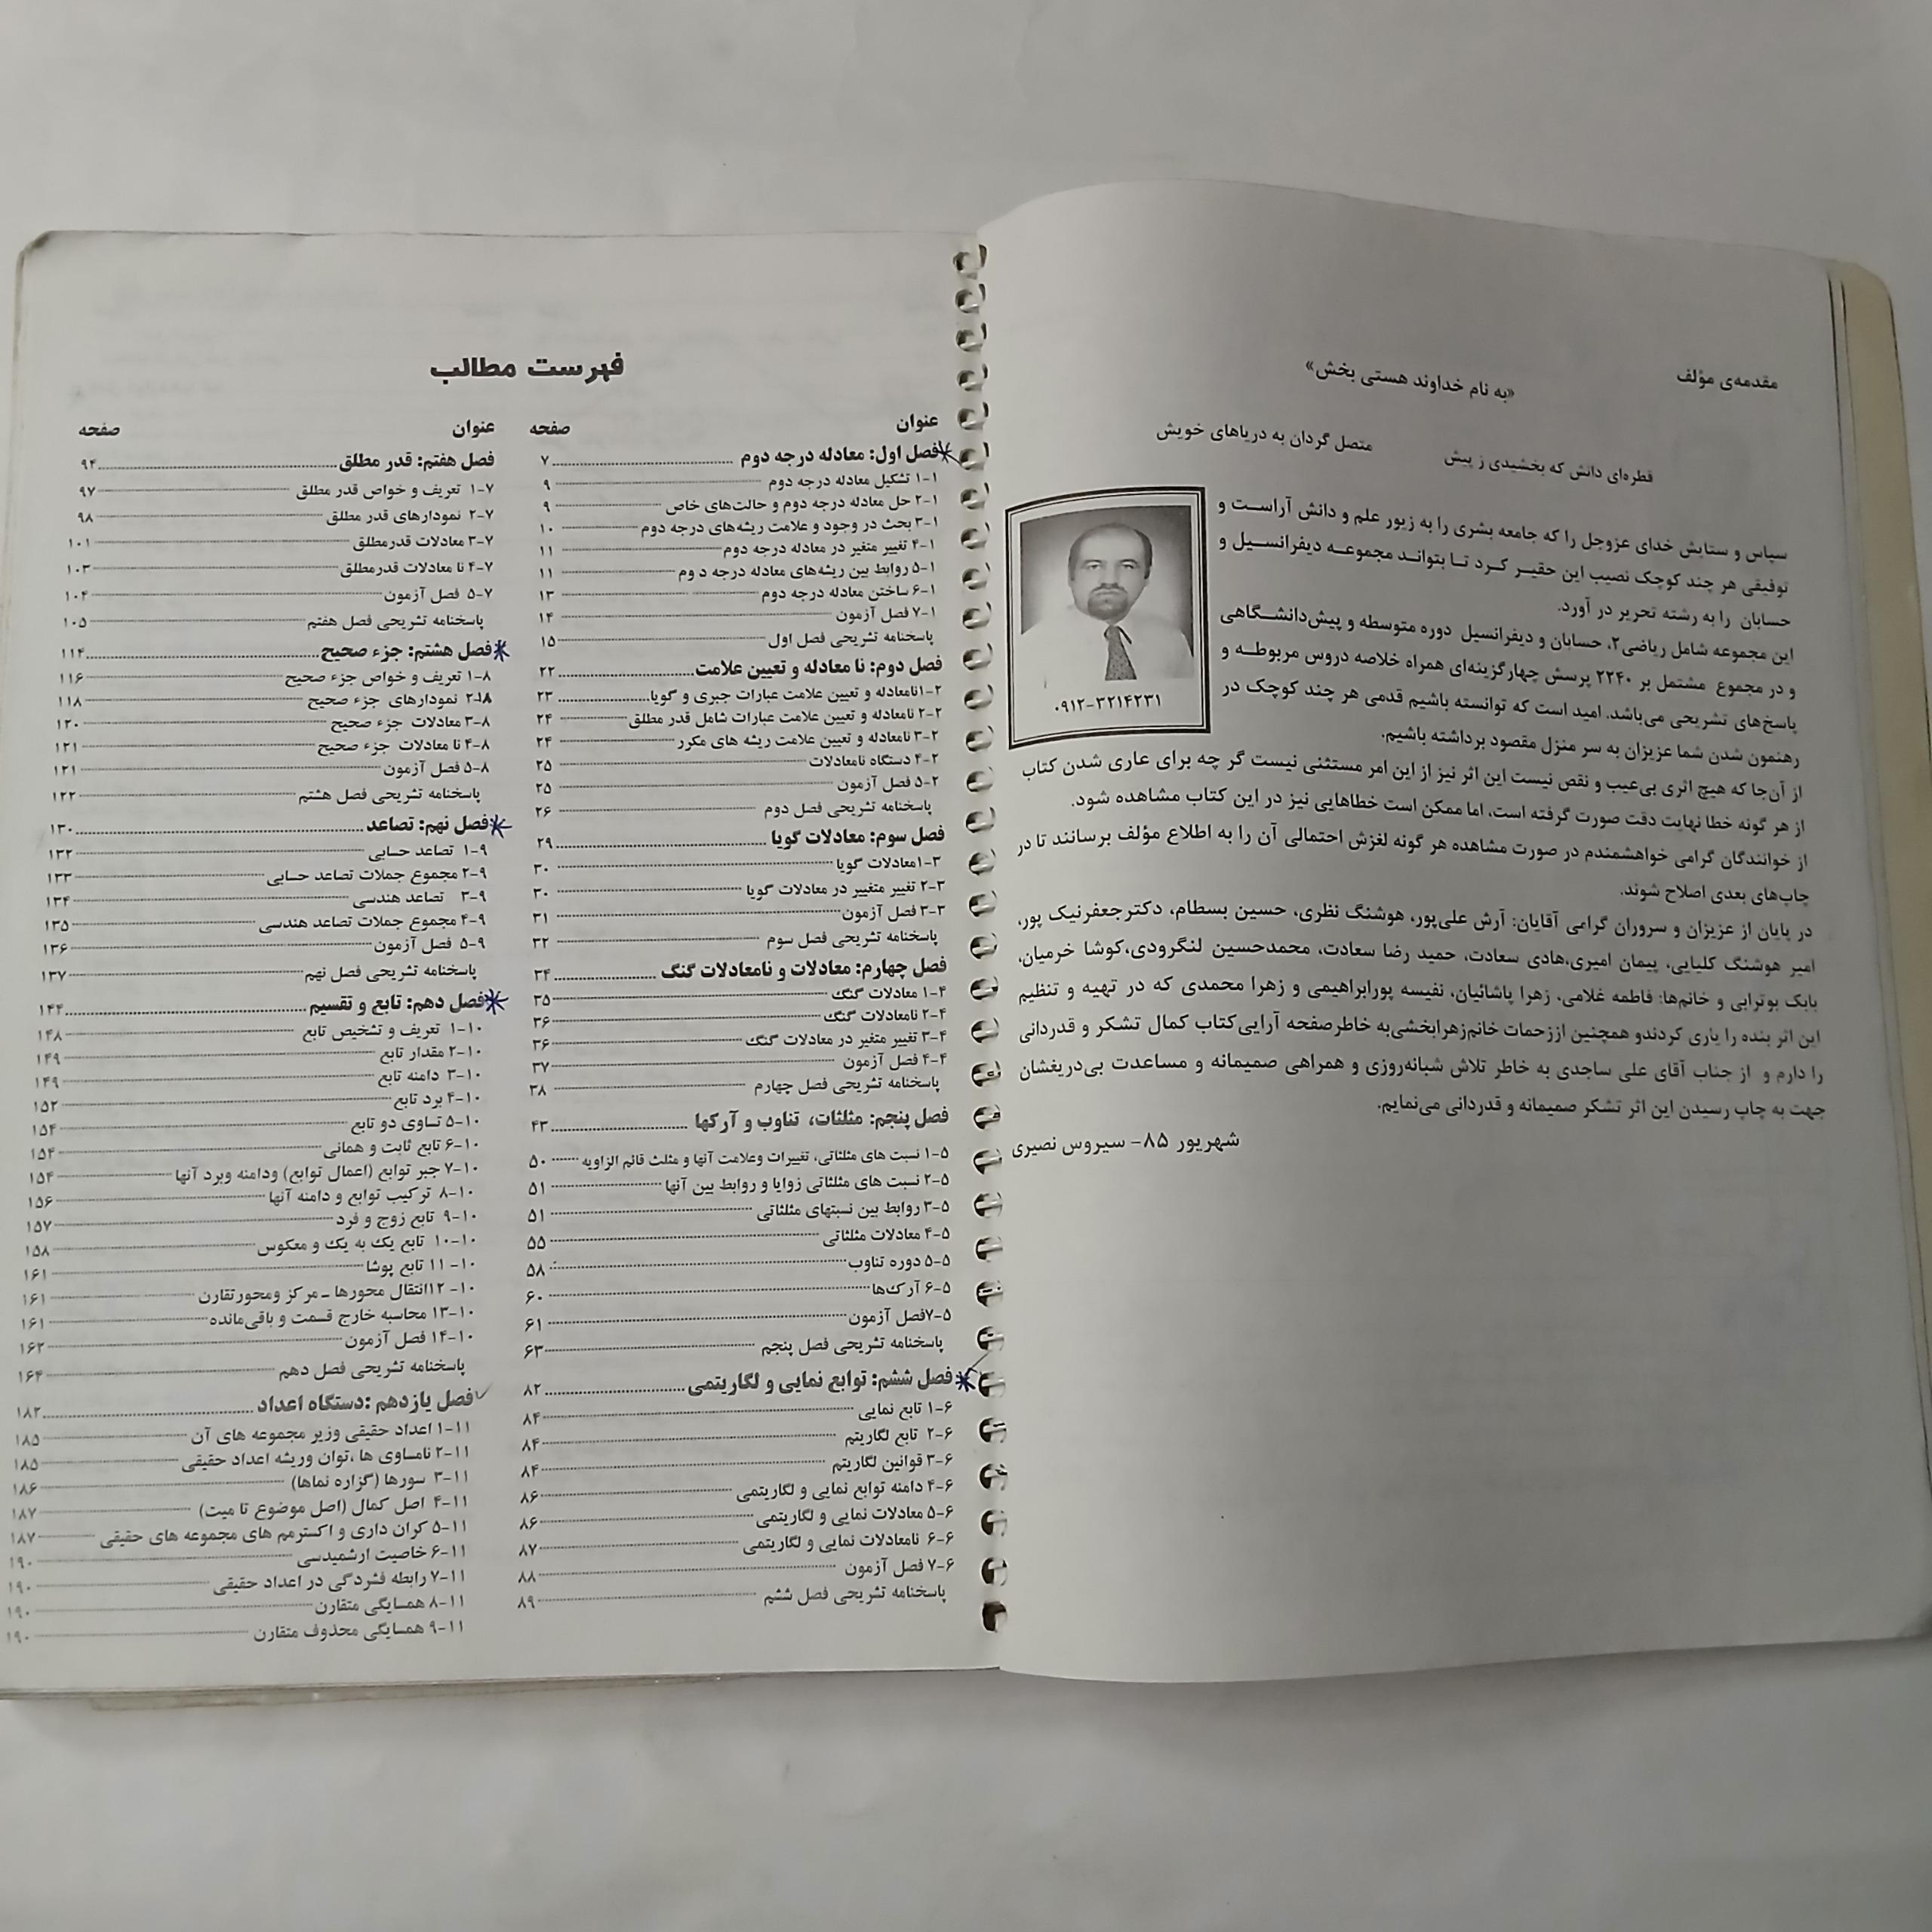 مقدمه‌ی مؤلف
«به نام خداوند هستی بخش»
قطره‌ای دانش که بخشیدی ز پیش
متصل گردان به دریاهای خویش
سپاس و ستایش خدای عزوجل را که جامعه بشری را به زیور علم و دانش آراست و
توفیقی هر چند کوچک نصیب این حقیر کرد تا بتواند مجموعه دیفرانسیل و
حسابان را به رشته تحریر در آورد.
این مجموعه شامل ریاضی۲، حسابان و دیفرانسیل دوره متوسطه و پیش‌دانشگاهی
و در مجموع مشتمل بر ۲۲۴۰ پرسش چهارگزینه‌ای همراه خلاصه دروس مربوطه و
پاسخ‌های تشریحی می‌باشد. امید است که توانسته باشیم قدمی هر چند کوچک در
رهنمون شدن شما عزیزان به سر منزل مقصود برداشته باشیم.
۰۹۱۲-۳۲۱۴۲۳۱
از آن‌جا که هیچ اثری بی‌عیب و نقص نیست این اثر نیز از این امر مستثنی نیست گر چه برای عاری شدن کتاب
از هر گونه خطا نهایت دقت صورت گرفته است، اما ممکن است خطاهایی نیز در این کتاب مشاهده شود.
از خوانندگان گرامی خواهشمندم در صورت مشاهده هر گونه لغزش احتمالی آن را به اطلاع مؤلف برسانند تا در
چاپ‌های بعدی اصلاح شوند.
در پایان از عزیزان و سروران گرامی آقایان: آرش علی‌پور، هوشنگ نظری، حسین بسطام، دکترجعفرنیک پور،
امیر هوشنگ کلیایی، پیمان امیری،هادی سعادت، حمید رضا سعادت، محمدحسین لنگرودی،کوشا خرمیان،
بابک بوترابی و خانم‌ها: فاطمه غلامی، زهرا پاشائیان، نفیسه پورابراهیمی و زهرا محمدی که در تهیه و تنظیم
این اثر بنده را یاری کردندو همچنین اززحمات خانم‌زهرابخشی‌به خاطرصفحه آرایی‌کتاب کمال تشکر و قدردانی
را دارم و از جناب آقای علی ساجدی به خاطر تلاش شبانه‌روزی و همراهی صمیمانه و مساعدت بی‌دریغشان
جهت به چاپ رسیدن این اثر تشکر صمیمانه و قدردانی می‌نمایم.
شهریور ۸۵- سیروس نصیری
فهرست مطالب
عنوان صفحه
فصل اول: معادله درجه دوم ۷
۱-۱ تشکیل معادله درجه دوم ۹
۲-۱ حل معادله درجه دوم و حالت‌های خاص ۹
۳-۱ بحث در وجود و علامت ریشه‌های درجه دوم ۱۰
۴-۱ تغییر متغیر در معادله درجه دوم ۱۱
۵-۱ روابط بین ریشه‌های معادله درجه د وم ۱۱
۶-۱ ساختن معادله درجه دوم ۱۳
۷-۱ فصل آزمون ۱۴
پاسخنامه تشریحی فصل اول ۱۵
فصل دوم: نا معادله و تعیین علامت ۲۲
۱-۲نامعادله و تعیین علامت عبارات جبری و گویا ۲۳
۲-۲ نامعادله و تعیین علامت عبارات شامل قدر مطلق ۲۴
۳-۲ نامعادله و تعیین علامت ریشه های مکرر ۲۴
۴-۲ دستگاه نامعادلات ۲۵
۵-۲ فصل آزمون ۲۵
پاسخنامه تشریحی فصل دوم ۲۶
فصل سوم: معادلات گویا ۲۹
۱-۳معادلات گویا ۳۰
۲-۳ تغییر متغییر در معادلات گویا ۳۰
۳-۳ فصل آزمون ۳۱
پاسخنامه تشریحی فصل سوم ۳۲
فصل چهارم: معادلات و نامعادلات گنگ ۳۴
۱-۴ معادلات گنگ ۳۵
۲-۴ نامعادلات گنگ ۳۶
۳-۴ تغییر متغیر در معادلات گنگ ۳۶
۴-۴ فصل آزمون ۳۷
پاسخنامه تشریحی فصل چهارم ۳۸
فصل پنجم: مثلثات، تناوب و آرکها ۴۳
۱-۵ نسبت های مثلثاتی، تغییرات وعلامت آنها و مثلث قائم الزاویه ۵۰
۲-۵ نسبت های مثلثاتی زوایا و روابط بین آنها ۵۱
۳-۵ روابط بین نسبتهای مثلثاتی ۵۱
۴-۵ معادلات مثلثاتی ۵۵
۵-۵ دوره تناوب ۵۸
۶-۵ آرک‌ها ۶۰
۷-۵فصل آزمون ۶۱
پاسخنامه تشریحی فصل پنجم ۶۳
فصل ششم: توابع نمایی و لگاریتمی ۸۲
۱-۶ تابع نمایی ۸۴
۲-۶ تابع لگاریتم ۸۴
۳-۶ قوانین لگاریتم ۸۴
۴-۶ دامنه توابع نمایی و لگاریتمی ۸۶
۵-۶ معادلات نمایی و لگاریتمی ۸۶
۶-۶ نامعادلات نمایی و لگاریتمی ۸۷
۷-۶ فصل آزمون ۸۸
پاسخنامه تشریحی فصل ششم ۸۹
عنوان صفحه
فصل هفتم: قدر مطلق ۹۴
۱-۷ تعریف و خواص قدر مطلق ۹۷
۲-۷ نمودارهای قدر مطلق ۹۸
۳-۷ معادلات قدرمطلق ۱۰۱
۴-۷ نا معادلات قدرمطلق ۱۰۳
۵-۷ فصل آزمون ۱۰۴
پاسخنامه تشریحی فصل هفتم ۱۰۵
فصل هشتم: جزء صحیح ۱۱۴
۱-۸ تعریف و خواص جزء صحیح ۱۱۶
۲-۸ نمودارهای جزء صحیح ۱۱۸
۳-۸ معادلات جزء صحیح ۱۲۰
۴-۸ نا معادلات جزء صحیح ۱۲۱
۵-۸ فصل آزمون ۱۲۱
پاسخنامه تشریحی فصل هشتم ۱۲۲
فصل نهم: تصاعد ۱۳۰
۱-۹ تصاعد حسابی ۱۳۲
۲-۹ مجموع جملات تصاعد حسابی ۱۳۳
۳-۹ تصاعد هندسی ۱۳۴
۴-۹ مجموع جملات تصاعد هندسی ۱۳۵
۵-۹ فصل آزمون ۱۳۶
پاسخنامه تشریحی فصل نهم ۱۳۷
فصل دهم: تابع و تقسیم ۱۴۴
۱-۱۰ تعریف و تشخیص تابع ۱۴۸
۲-۱۰ مقدار تابع ۱۴۹
۳-۱۰ دامنه تابع ۱۴۹
۴-۱۰ برد تابع ۱۵۲
۵-۱۰ تساوی دو تابع ۱۵۴
۶-۱۰ تابع ثابت و همانی ۱۵۴
۷-۱۰ جبر توابع (اعمال توابع) ودامنه وبرد آنها ۱۵۴
۸-۱۰ ترکیب توابع و دامنه آنها ۱۵۶
۹-۱۰ تابع زوج و فرد ۱۵۷
۱۰-۱۰ تابع یک به یک و معکوس ۱۵۸
۱۱-۱۰ تابع پوشا ۱۶۱
۱۲-۱۰انتقال محورها ـ مرکز ومحورتقارن ۱۶۱
۱۳-۱۰ محاسبه خارج قسمت و باقی‌مانده ۱۶۱
۱۴-۱۰ فصل آزمون ۱۶۲
پاسخنامه تشریحی فصل دهم ۱۶۴
فصل یازدهم :دستگاه اعداد ۱۸۲
۱-۱۱ اعداد حقیقی وزیر مجموعه های آن ۱۸۵
۲-۱۱ نامساوی ها ،توان وریشه اعداد حقیقی ۱۸۵
۳-۱۱ سورها (گزاره نماها) ۱۸۶
۴-۱۱ اصل کمال (اصل موضوع تا میت) ۱۸۷
۵-۱۱ کران داری و اکسترمم های مجموعه های حقیقی ۱۸۷
۶-۱۱ خاصیت ارشمیدسی ۱۹۰
۷-۱۱ رابطه فشردگی در اعداد حقیقی ۱۹۰
۸-۱۱ همسایگی متقارن ۱۹۰
۹-۱۱ همسایگی محذوف متقارن ۱۹۰